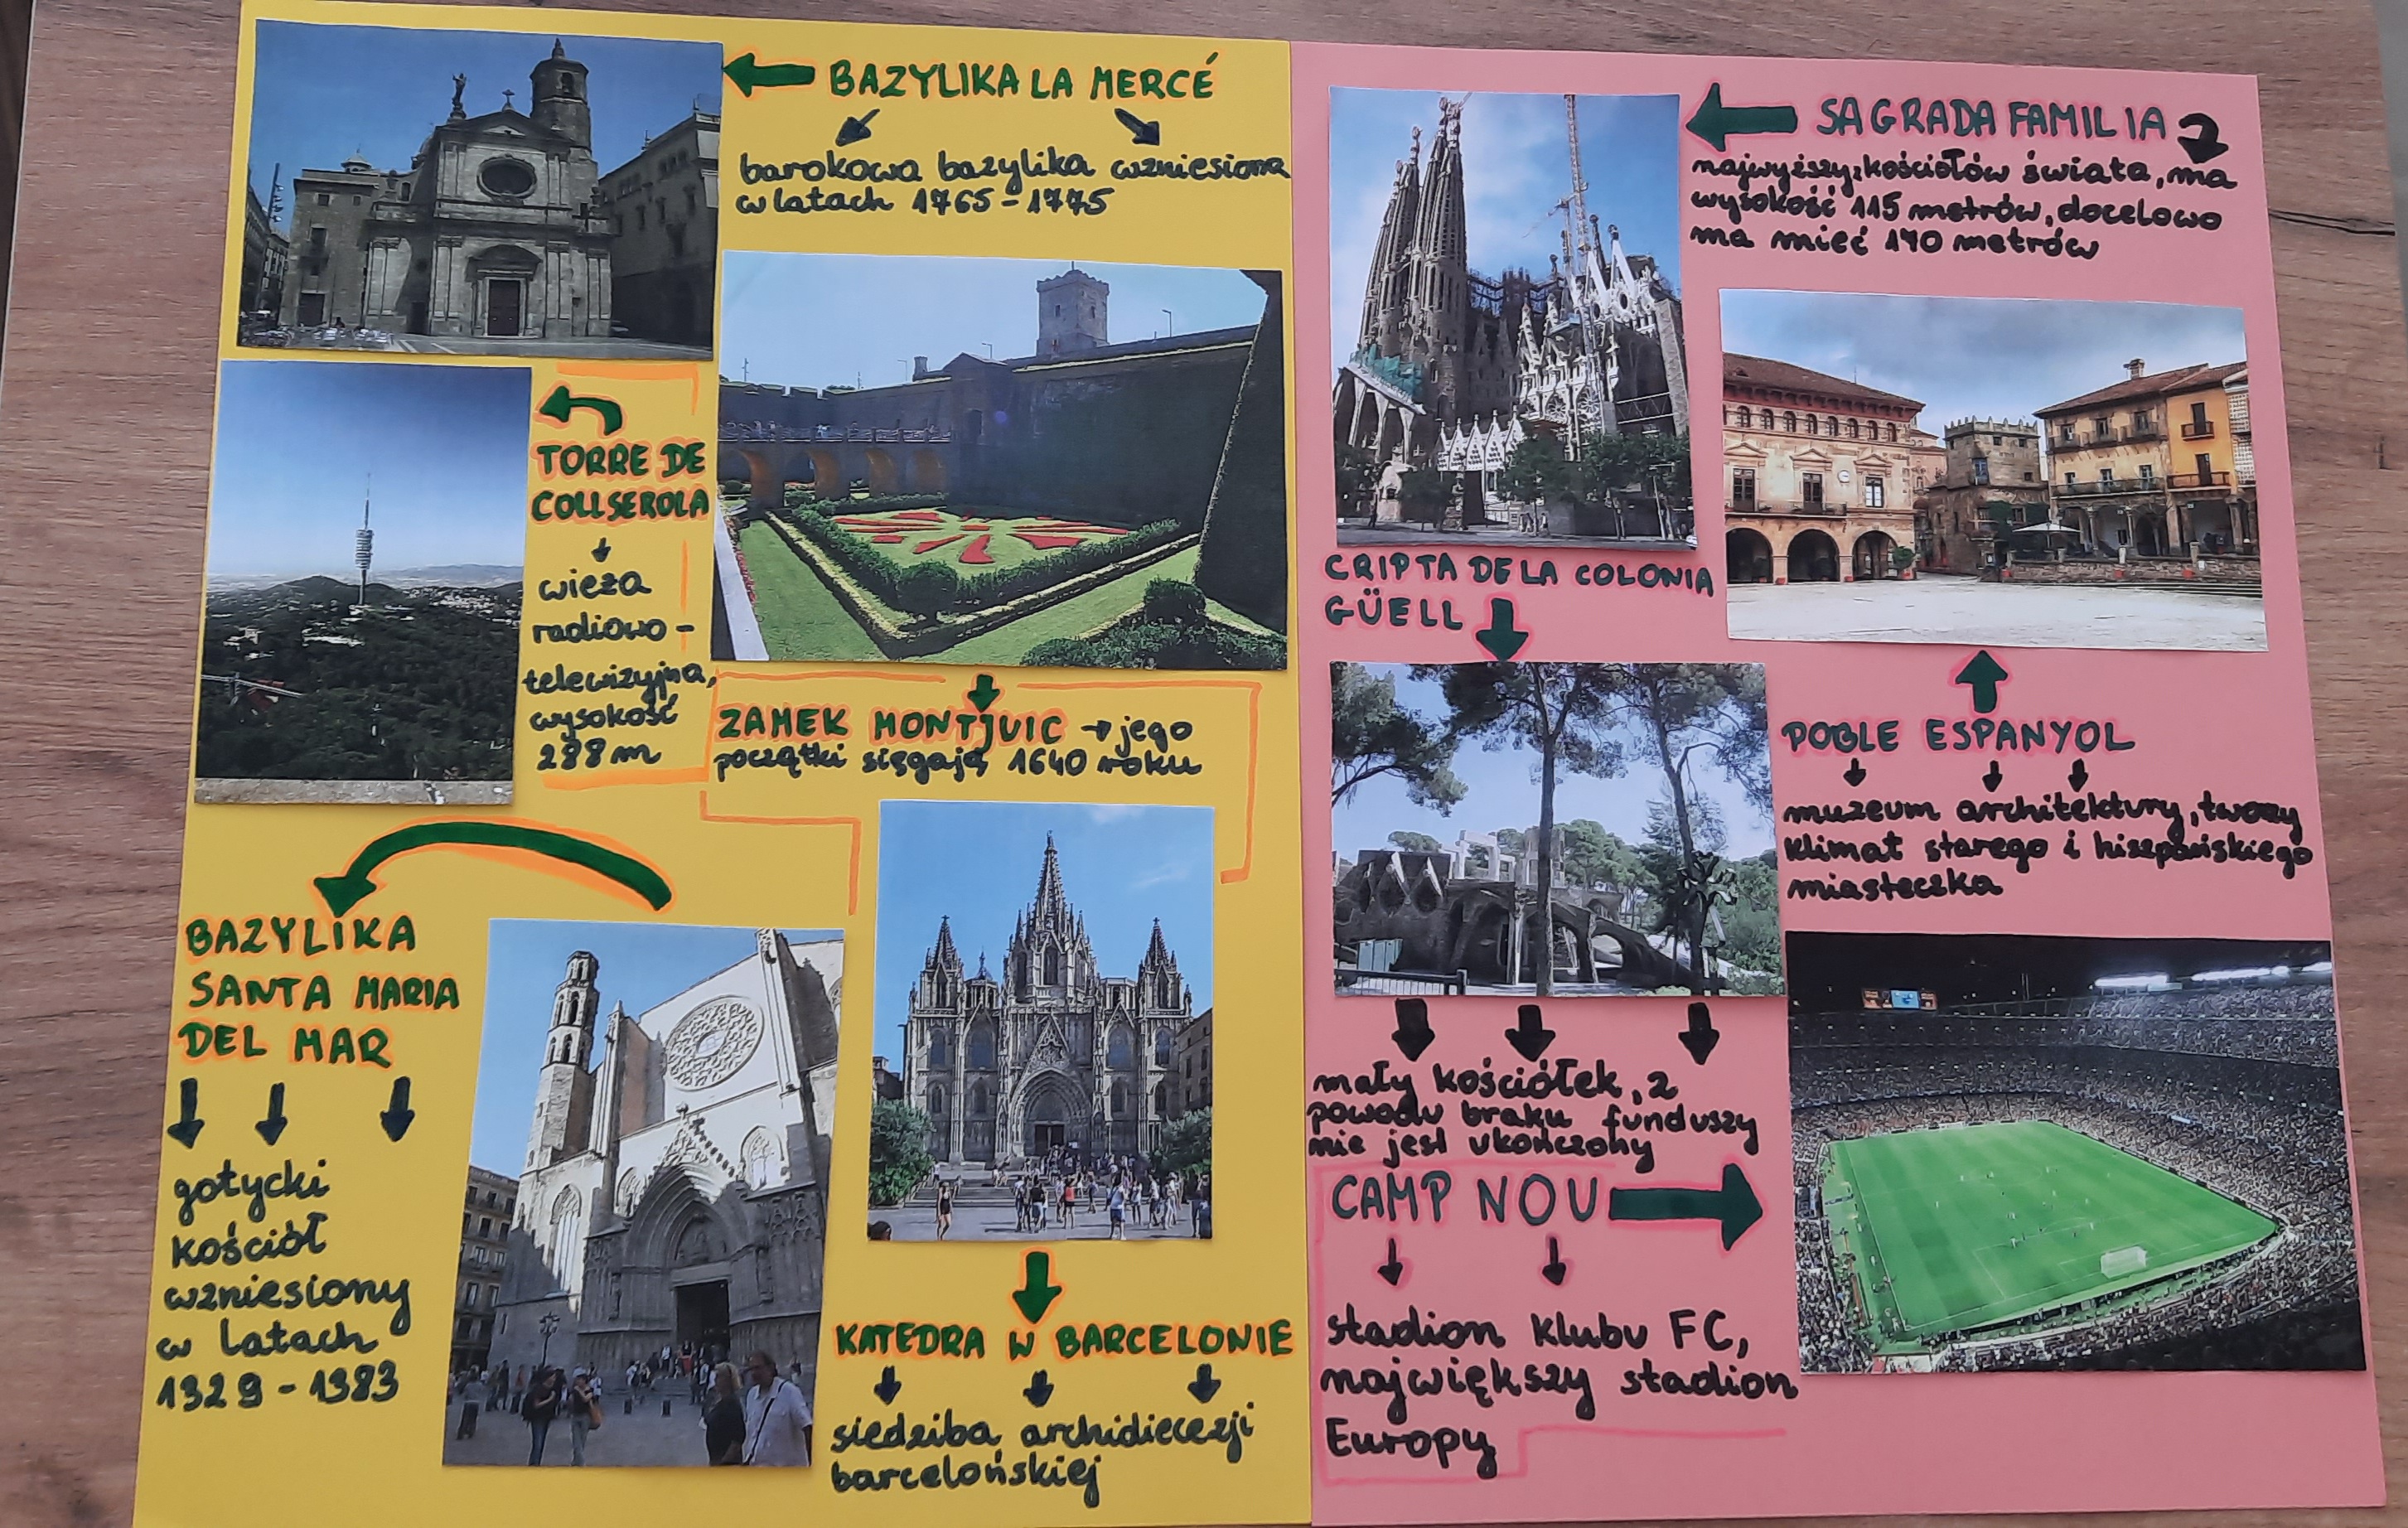 BAZYLIKA LA MERCÉ
barokowa bazylika wzniesiona
w latach 1765-1775
TORRE DE
COLLSEROLA
wieża
radiowo-
telewizyjna,
wysokość
288m
ZAMEK MONTJUIC → jego
początki sięgają 1640 roku
BAZYLIKA
SANTA MARIA
DEL MAR
gotycki
kościół
wzniesiony
w latach
1329-1383
KATEDRA W BARCELONIE
siedziba archidiecezji
barcelońskiej
SAGRADA FAMILIA
najwyższy z kościołów świata, ma
wysokość 115 metrów, docelowo
ma mieć 170 metrów
CRIPTA DE LA COLONIA
GÜELL
mały kościółek, z
powodu braku funduszy
nie jest ukończony
POBLE ESPANYOL
muzeum architektury, tworzy
klimat starego i hiszpańskiego
miasteczka
CAMP NOU
stadion klubu FC,
największy stadion
Europy